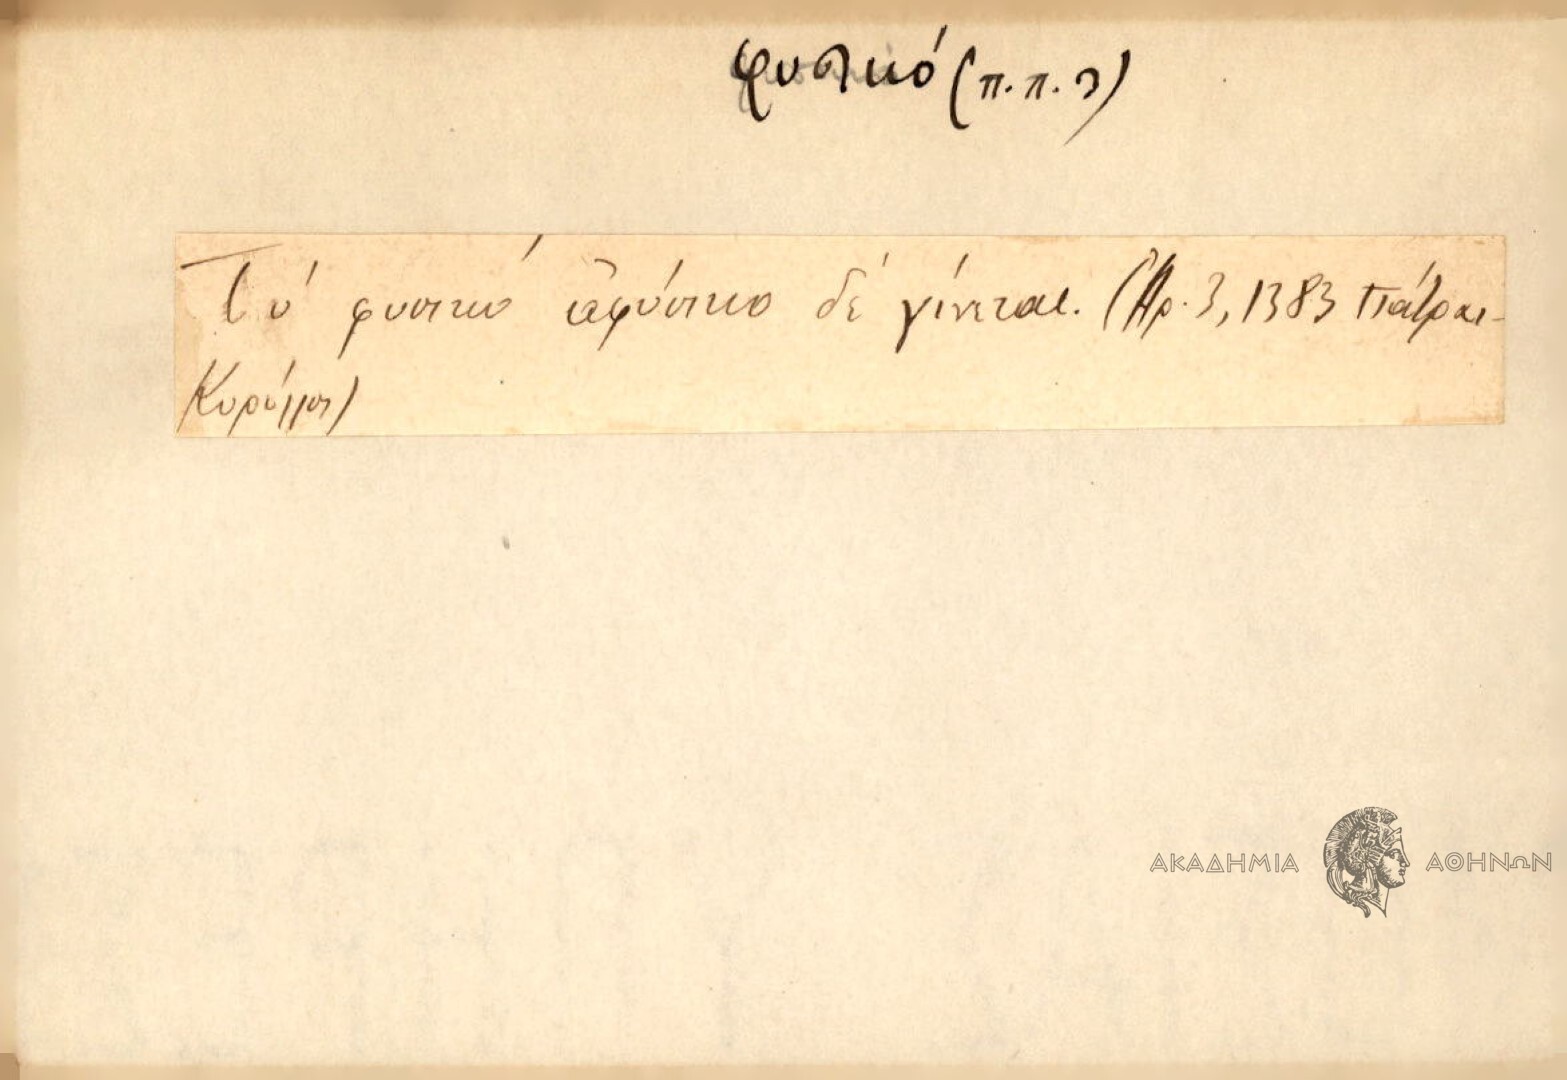 φυσικό (π.π. 2)
Τό φυσικό ἀφύσικο δέ γίνεται. (Ἀρ. 3, 1383 Πάτραι-
Κορύλλος)
ΑΚΑΔΗΜΙΑ ΑΘΗΝΩΝ